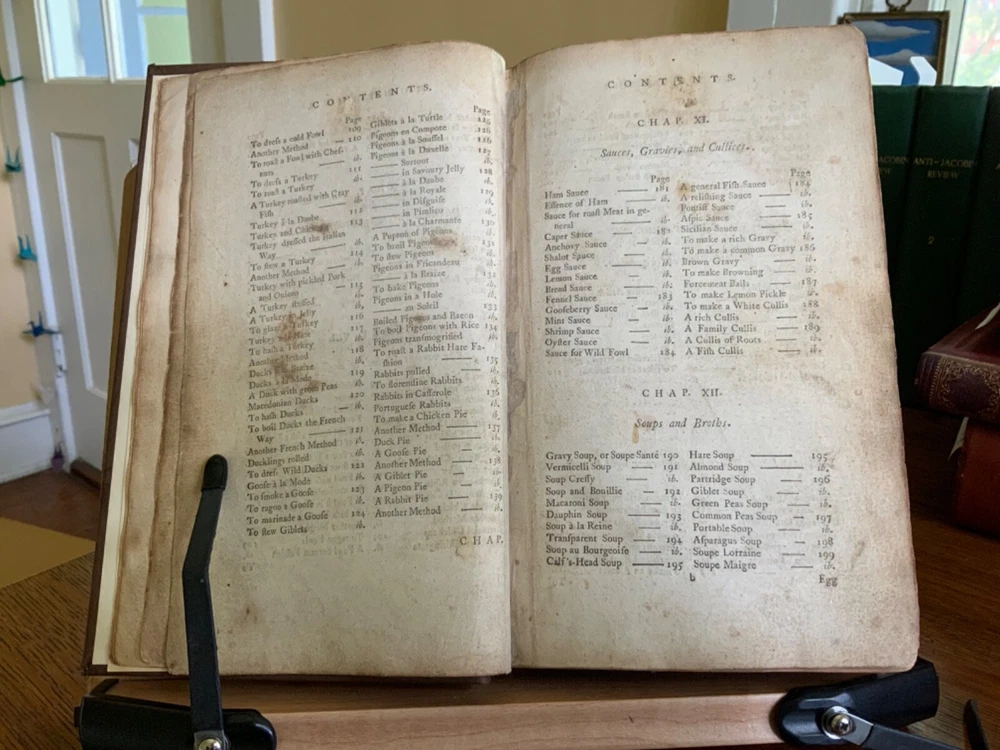 CONTENTS.
Page
To dreſs a cold Fowl 109
Another Method — 110
To roaſt a Fowl with Cheſ-
nuts ib.
To dreſs a Turkey 111
To roaſt a Turkey ib.
A Turkey roaſted with Cray
Fiſh ib.
Turkey à la Daube 112
Turkey and 113
Turkey dreſſed the Italian
Way ib.
To ſtew a Turkey 114
Another Method ib.
Turkey with pickled Pork
and Onions ib.
A Turkey ſtuffed 115
A Turkey in Jelly ib.
To glaze a Turkey 116
Turkey ib.
To haſh a Turkey 117
Another Method ib.
Ducks 118
Ducks à la Mode ib.
A Duck with green Peas 119
Macedonian Ducks ib.
To haſh Ducks 120
To boil Ducks the French
Way — ib.
Another French Method 121
Ducklings rolled ib.
To dreſs Wild Ducks ib.
Gooſe à la Mode 122
To ſmoke a Gooſe ib.
To ragoo a Gooſe 123
To marinade a Gooſe ib.
To ſtew Giblets 124
Page
Giblets à la Turtle 125
Pigeons en Compote 126
Pigeons à la Souſſel ib.
Pigeons à la Duxelle 127
—— Surtout ib.
—— in Savoury Jelly 128
—— à la Daube ib.
—— à la Royale 129
—— in Diſguiſe ib.
—— in Pimlico ib.
—— à la Charmante 130
A Pupton of Pigeons ib.
To broil Pigeons 131
To ſtew Pigeons ib.
Pigeons in Fricandeau ib.
—— à la Braize 132
To bake Pigeons ib.
Pigeons in a Hole ib.
—— au Soleil 133
Boiled Pigeons and Bacon ib.
To boil Pigeons with Rice 134
Pigeons tranſmogrified ib.
To roaſt a Rabbit Hare Fa-
ſhion —— 135
Rabbits pulled — ib.
To florendine Rabbits ib.
Rabbits in Caſſerole 136
Portugueſe Rabbits ib.
To make a Chicken Pie ib.
Another Method —— 137
Duck Pie — ib.
A Gooſe Pie — ib.
Another Method —— 138
A Giblet Pie — ib.
A Pigeon Pie — ib.
A Rabbit Pie —— 139
Another Method —— ib.
CHAP.
CONTENTS.
CHAP. XI.
Sauces, Gravies, and Culliſes.
Page
Ham Sauce —— 181
Eſſence of Ham —— ib.
Sauce for roaſt Meat in ge-
neral —— ib.
Caper Sauce —— 182
Anchovy Sauce —— ib.
Shalot Sauce —— ib.
Egg Sauce —— ib.
Lemon Sauce —— ib.
Bread Sauce —— ib.
Fennel Sauce —— 183
Gooſeberry Sauce —— ib.
Mint Sauce —— ib.
Shrimp Sauce —— ib.
Oyſter Sauce —— ib.
Sauce for Wild Fowl 184
Page
A general Fiſh-Sauce — 184
A reliſhing Sauce — ib.
Pontiff Sauce — ib.
Aſpic Sauce — 185
Sicilian Sauce — ib.
To make a rich Gravy ib.
To make a common Gravy 186
Brown Gravy — ib.
To make Browning ib.
Forcemeat Balls — 187
To make Lemon Pickle ib.
To make a White Cullis 188
A rich Cullis — ib.
A Family Cullis — 189
A Cullis of Roots — ib.
A Fiſh Cullis — ib.
CHAP. XII.
Soups and Broths.
Gravy Soup, or Soupe Santé 190
Vermicelli Soup — 191
Soup Creſſy — ib.
Soup and Bouillie — 192
Macaroni Soup — ib.
Dauphin Soup — 193
Soup à la Reine — ib.
Tranſparent Soup — 194
Soup au Bourgeoiſe — ib.
Calf's-Head Soup —— 195
Hare Soup —— 195
Almond Soup — ib.
Partridge Soup — 196
Giblet Soup — ib.
Green Peas Soup — ib.
Common Peas Soup — 197
Portable Soup — ib.
Aſparagus Soup — 198
Soupe Lorraine — 199
Soupe Maigre — ib.
b
Egg
ANTI-JACOBIN
REVIEW
2